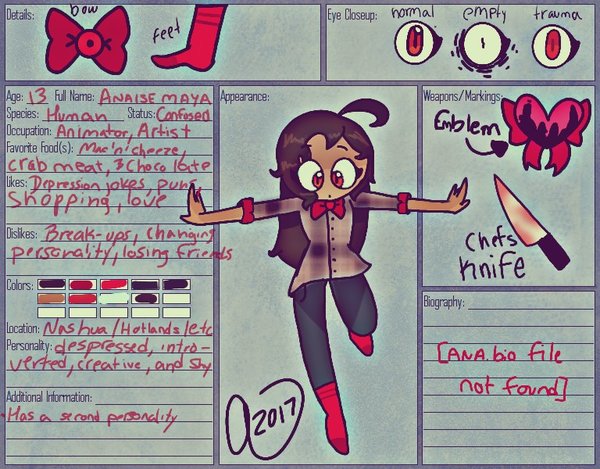 Details:
bow
feet
Eye Closeup:
normal
empty
trauma
Age: 13 Full Name: ANAISE MAYA
Species: Human Status: Confused
Occupation: Animator, Artist
Favorite Food(s): Mac'n'cheeze,
crab meat, & Chocolate
Likes: Depression jokes, puns,
shopping, love
Dislikes: Break-ups, changing
personality, losing friends
Colors:
Location: Nashua/Hotlands/etc
Personality: despressed, intro-
verted, creative, and shy
Additional Information:
-Has a second personality
Appearance:
2017
Weapons/Markings:
Emblem
Chefs
Knife
Biography:
[ANA.bio file
not found]